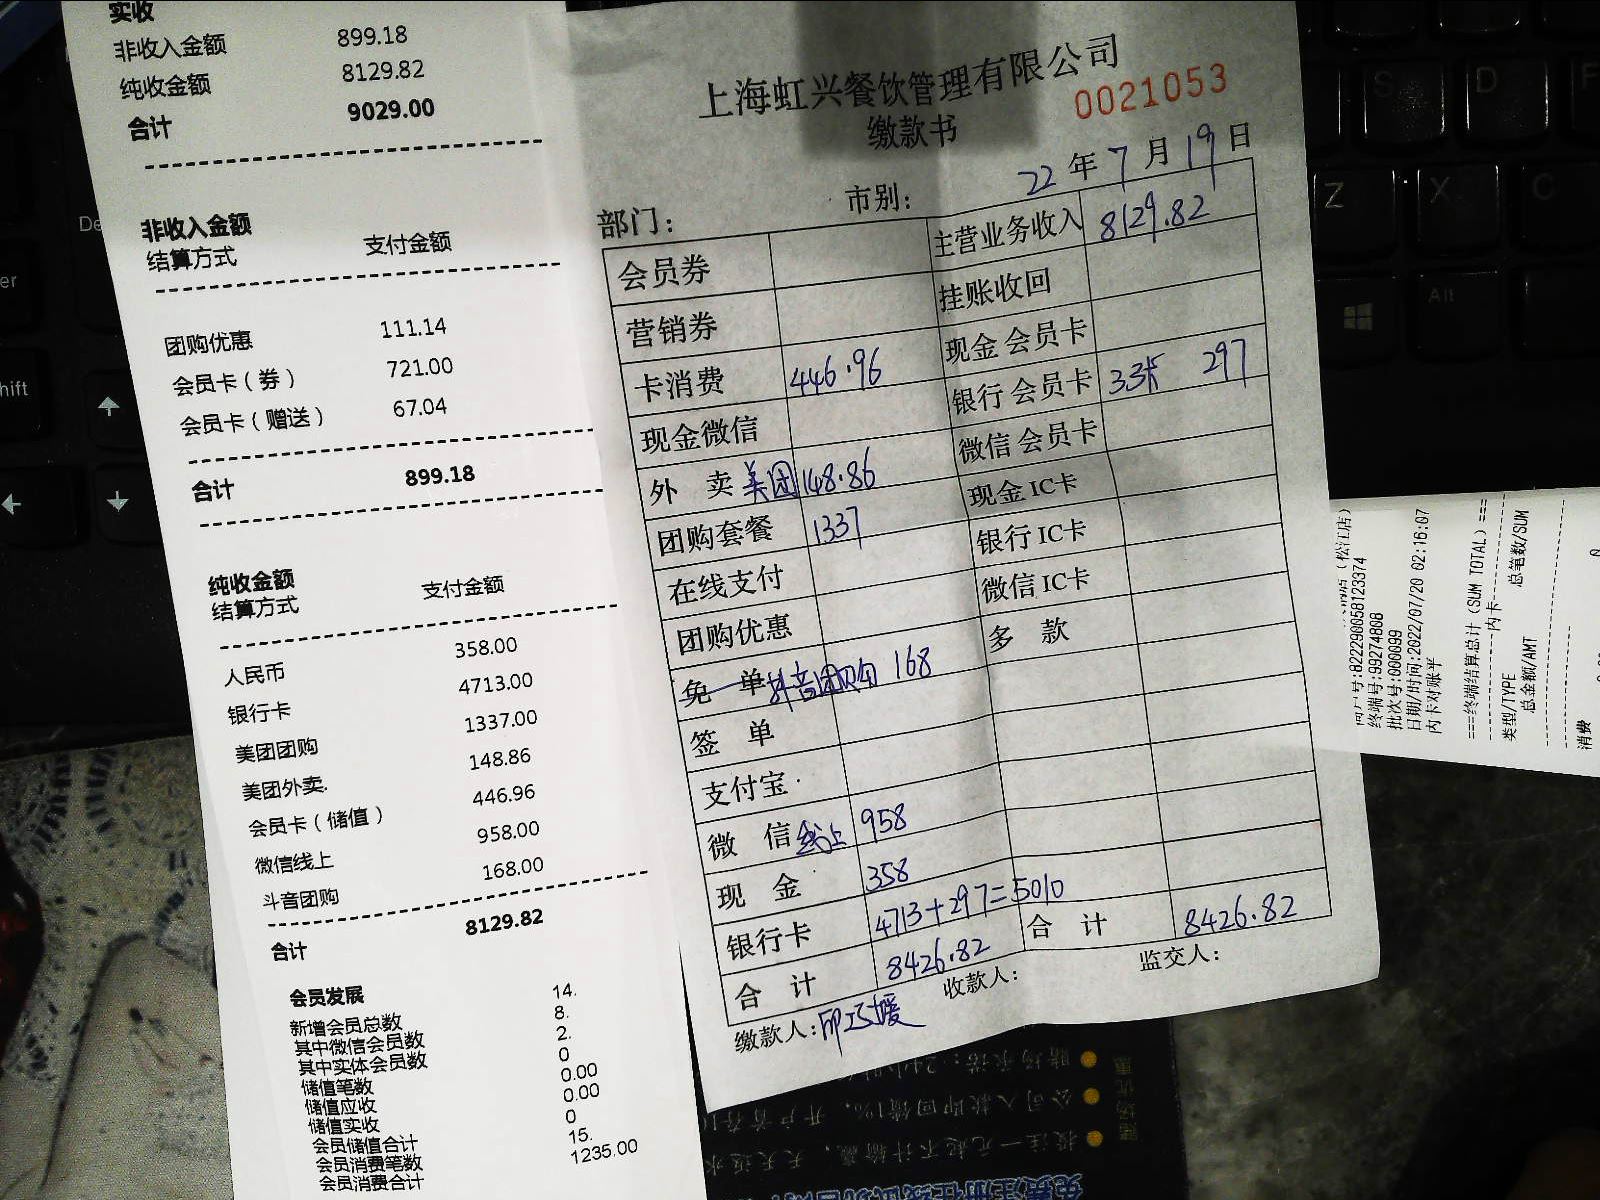 实收
非收入金额 899.18
纯收金额 8129.82
合计 9029.00
非收入金额
结算方式 支付金额
团购优惠 111.14
会员卡（券） 721.00
会员卡（赠送） 67.04
合计 899.18
纯收金额
结算方式 支付金额
人民币 358.00
银行卡 4713.00
美团团购 1337.00
美团外卖. 148.86
会员卡（储值） 446.96
微信线上 958.00
斗音团购 168.00
合计 8129.82
会员发展
新增会员总数 14.
其中微信会员数 8.
其中实体会员数 2.
储值笔数 0
储值应收 0.00
储值实收 0.00
会员储值合计 0
会员消费笔数 15.
会员消费合计 1235.00
上海虹兴餐饮管理有限公司
缴款书
0021053
22 年 7 月 19 日
部门： 市别：
会员券 主营业务收入 8129.82
营销券 挂账收回
卡消费 446.96 现金 会员卡
现金微信 银行 会员卡 33张 297
外 卖 美团 148.86 微信 会员卡
团购套餐 1337 现金 IC卡
在线支付 银行 IC卡
团购优惠 微信 IC卡
免 单 抖音团购 168 多 款
签 单
支付宝
微 信 线上 958
现 金 358
银行卡 4713+297=5010
合 计 8426.82 合 计 8426.82
缴款人： 收款人： 监交人：
（松江店）
商户号:822290058123374
终端号:99274808
批次号:000099
日期/时间:2022/07/20 02:16:07
内卡对账平
===终端结算总计 (SUM TOTAL)===
内卡
类型/TYPE 总笔数/SUM
总金额/AMT
消费 0
S D F
Z X C
Alt
De
er
hift